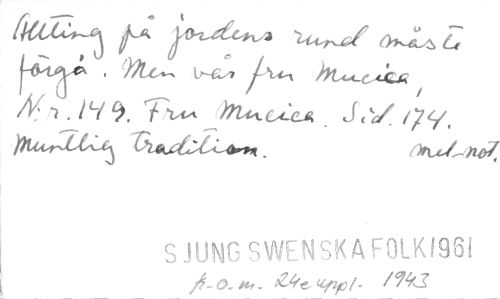 Allting på jordens rund måste
förgå. Men vår fru Mucica,
N:r. 149. Fru Mucica. Sid. 174.
Muntlig tradition. mel-not.
SJUNG SWENSKA FOLK 1961
fr.o.m. 24e uppl. 1943